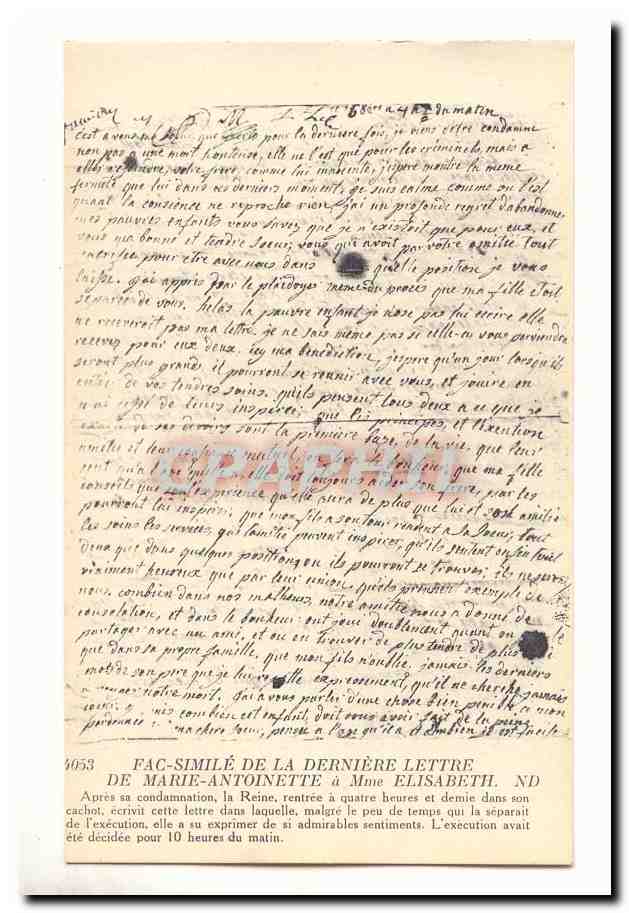 ce 8bre a 4h ½ du matin
c'est a vous, ma soeur, que j'ecris pour la derniere fois, je viens d'etre condamné
non pas a une mort honteuse, elle ne l'est que pour les criminels, mais a
aller rejoindre votre frere, comme lui inocente, j'espere montre la meme
fermeté que lui dans ces derniers moments. je suis calme comme on l'est
quand la conscience ne reproche rien, j'ai un profond regret d'abandonner
mes pauvres enfants vous savez que je n'existoit que pour eux, et
vous ma bonne et tendre soeur, vous qui avoit par votre amitie tout
sacrifie pour etre avec nous dans quelle position je vous
laisse. j'ai appris par le plaidoyer meme du proces que ma fille etoit
separée de vous. helas la pauvre enfant je n'ose pas lui ecrire elle
ne recevroit pas ma lettre je ne sais meme pas si celle-cy vous parviendra
recevez pour eux deux, icy ma benediction, j'espere qu'un jour lorsqu'ils
seront plus grands il pourront se reunir avec vous, et jouire en
entier de vos tendres soins, qu'ils pensent tous deux a ce que je
n'ai cessé de leurs inspirer; que les principes, et l'exention
exacte de ses devoirs sont la premiere base, de la vie, que leur
amitie et leur mutuel, que ma fille
toujours aider son frere, par les
conseils que experience qu'elle aura de plus que lui et son amitie
pourront lui inspirer; que mon fils a son tour rendent a sa soeur, tout
les soins les services, que l'amitie peuvent inspirer; qu'ils sentent enfin tout
deux que dans quelques positions ou ils pourront se trouver; ils ne seront
vraiment heureux que par leur union, qu'ils prennent exemple de
nous. combien dans nos malheurs, notre amitie nous a donné de
consolation, et dans le bonheur on jouit doublement quand on
partager avec un ami, et ou en trouver de plus tendre de plus
que dans sa propre famille, que mon fils n'oublie jamais les derniers
mots de son pere que je lui repette expressement, qu'il ne cherche jamais
a venger notre mort. j'ai a vous parler d'une chose bien penible a mon
coeur; combien cet enfant, doit vous avoir fait de la peine
pardonnez ma chere soeur, pensez a l'age qu'il a et combien il est facile
4053 FAC-SIMILÉ DE LA DERNIÈRE LETTRE
DE MARIE-ANTOINETTE à Mme ELISABETH. ND
Après sa condamnation, la Reine, rentrée à quatre heures et demie dans son
cachot, écrivit cette lettre dans laquelle, malgré le peu de temps qui la séparait
de l'exécution, elle a su exprimer de si admirables sentiments. L'exécution avait
été décidée pour 10 heures du matin.